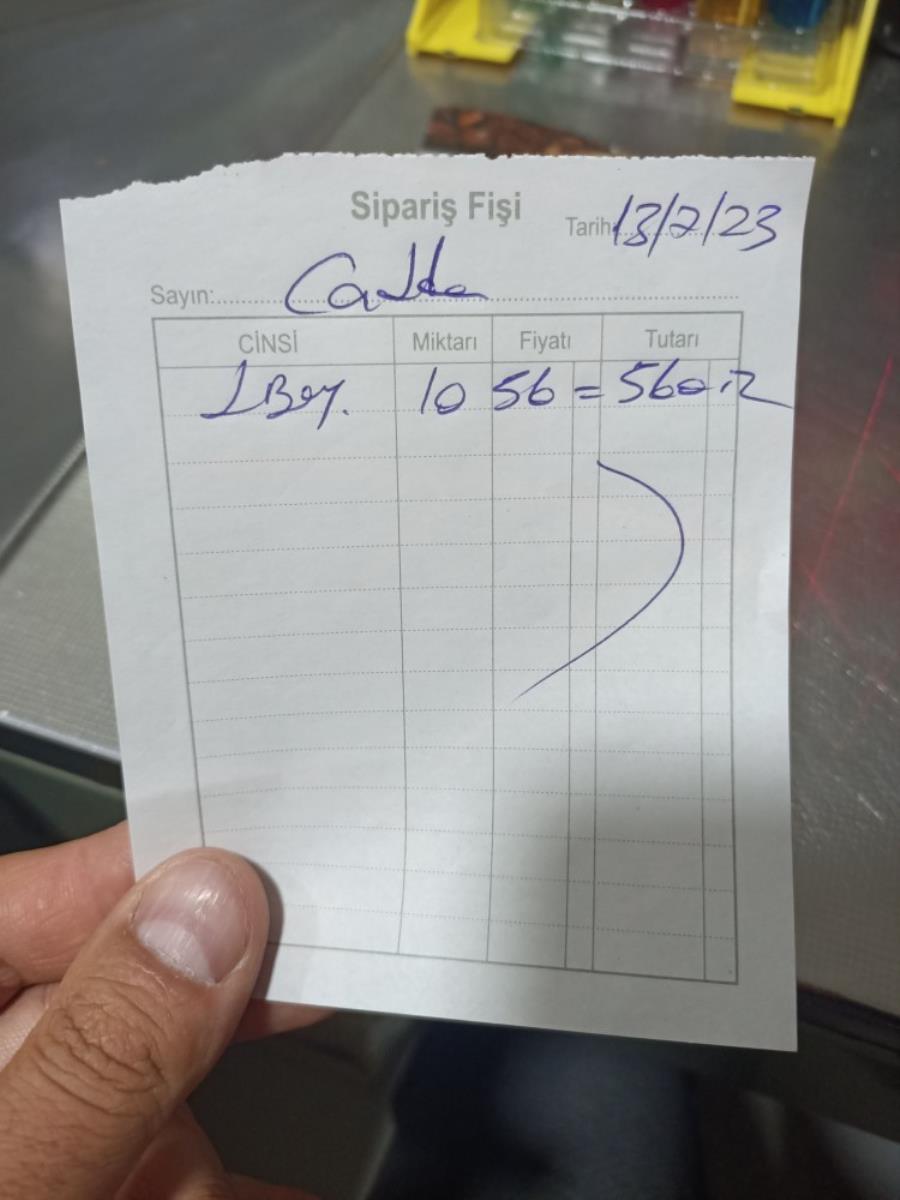 Sipariş Fişi
Tarih: 13/2/23
Sayın:
CİNSİ Miktarı Fiyatı Tutarı
10 56 = 560